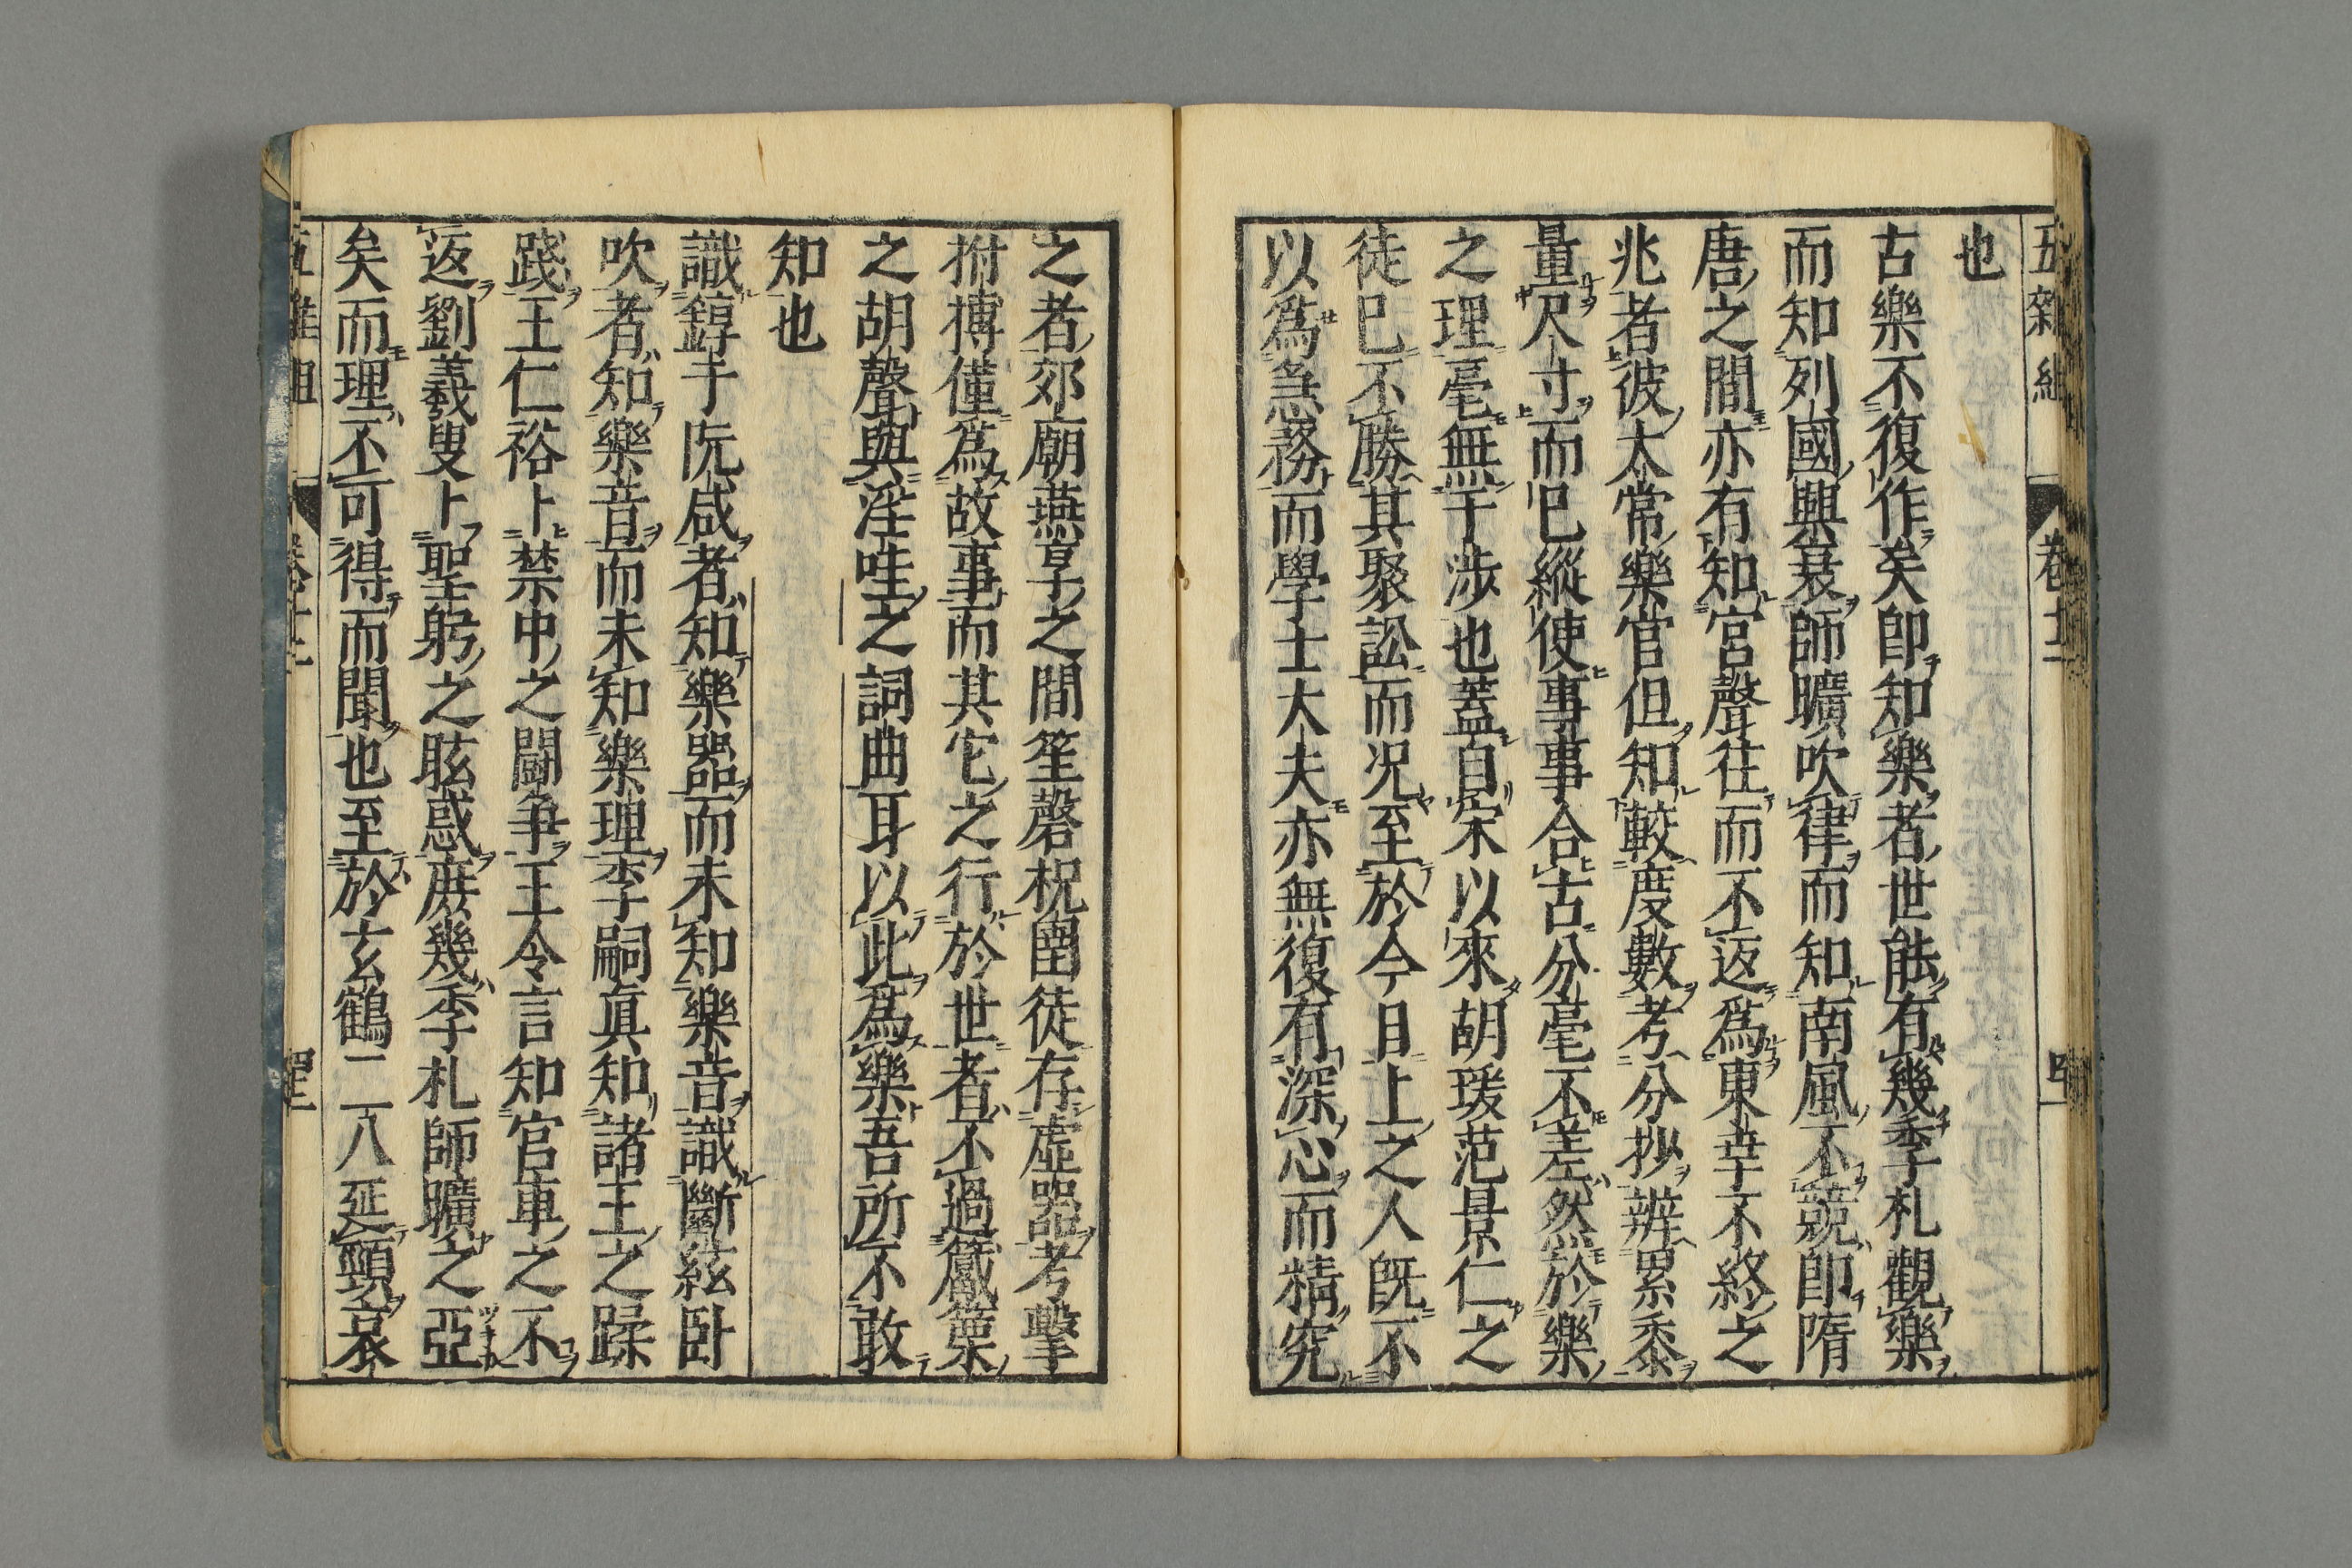 五雜組 卷十二
也
古樂不復作矣卽知樂者世能有幾季札觀樂
而知列國興衰師曠吹律而知南風不競卽隋
唐之間亦有知宮聲往而不返爲東幸不終之
兆者彼太常樂官但知較度數考分抄辨累黍
量尺寸而已縱使事事合古分毫不差然於樂
之理毫無干涉也蓋自宋以來胡瑗范景仁之
徒已不勝其聚訟而况至於今日上之人既不
以爲急務而學士大夫亦無復有深心而精究
之者郊廟燕享之間笙磬柷圉徒存虛器考擊
拊摶僅爲故事而其它之行於世者不過觱篥
之胡聲與淫哇之詞曲耳以此爲樂吾所不敢
知也
識錞于阮咸者知樂器而未知樂音識斷絃卧
吹者知樂音而未知樂理李嗣眞知諸王之蹂
踐王仁裕卜禁中之鬪争王令言知官車之不
返劉羲叟卜聖躬之眩惑庶幾季札師曠之亞
矣而理不可得而聞也至於玄鶴二八延頸哀
五雜組 卷十二